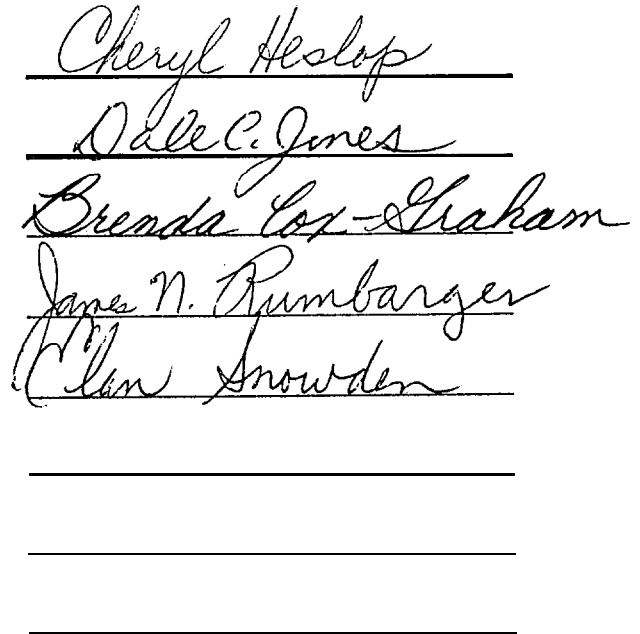 Cheryl Heslop
Dale C. Jones
Brenda Cox-Graham
James N. Rumbarger
Snowden